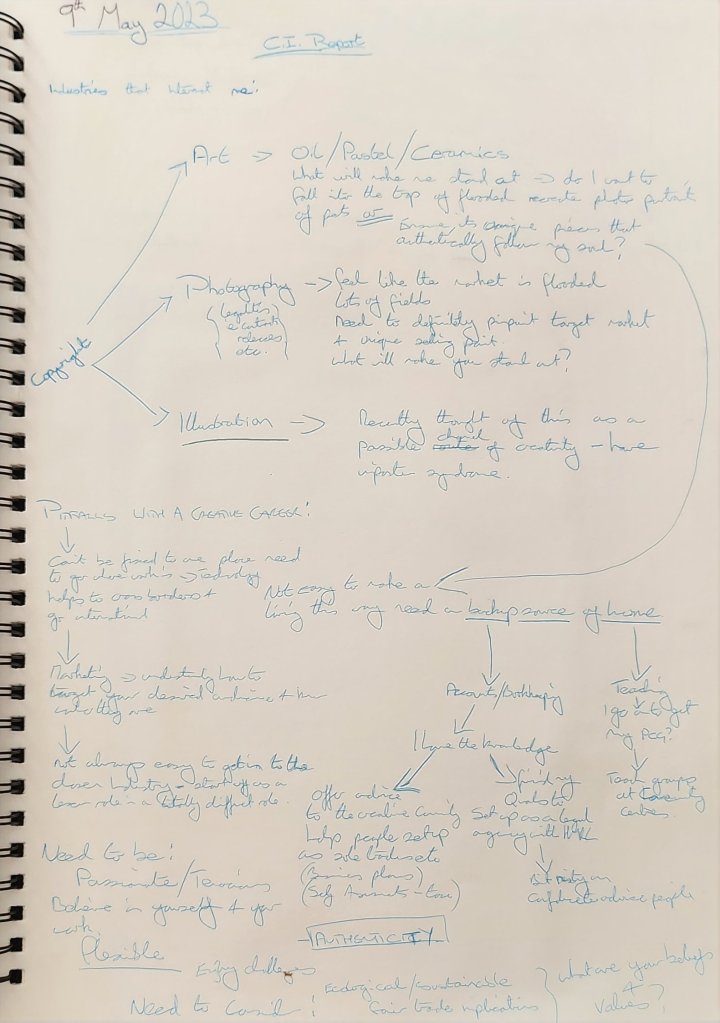 9th May 2023
C.I. Report
Industries that interest me:
Art -> Oil/Pastel/Ceramics
What will make me stand out -> do I want to
fall into the top of flooded recreate photo portrait
of pets or Ensure its unique pieces that
authentically follow my soul?
Photography -> feel like the market is flooded
(Legalities
Lots of fields
releases
etc.)
Need to definitely pinpoint target market
+ unique selling point.
What will make you stand out?
Copyright
Illustration -> Recently thought of this as a
possible channel of creativity - have
imposter syndrome.
PITFALLS WITH A CREATIVE CAREER:
Can't be fixed to one place need
to go where work is -> Technology
helps to cross borders +
go international
Not easy to make a
living this way need a backup source of income
Marketing -> understanding how to
target your desired audience + know
who they are
Accounts/Bookkeeping
I have the knowledge
Teaching
I go on to get
my PCG?
Not always easy to get in to the
chosen Industry - start off as a
lesser role in a totally different role.
Offer advice
to the creative community
help people set up
as sole traders etc
(Business plans)
(Self Assessments - tax)
finish my
Quals to
Set up as a legal
agency with HMRC
Teach groups
at Community
centres.
confidently advise people
Need to be:
Passionate/Tenacious
Believe in yourself + your
work.
Flexible
Enjoy challenges
AUTHENTICITY
Need to Consider:
Ecological/sustainable
fair trade implications
What are your beliefs
+
values?